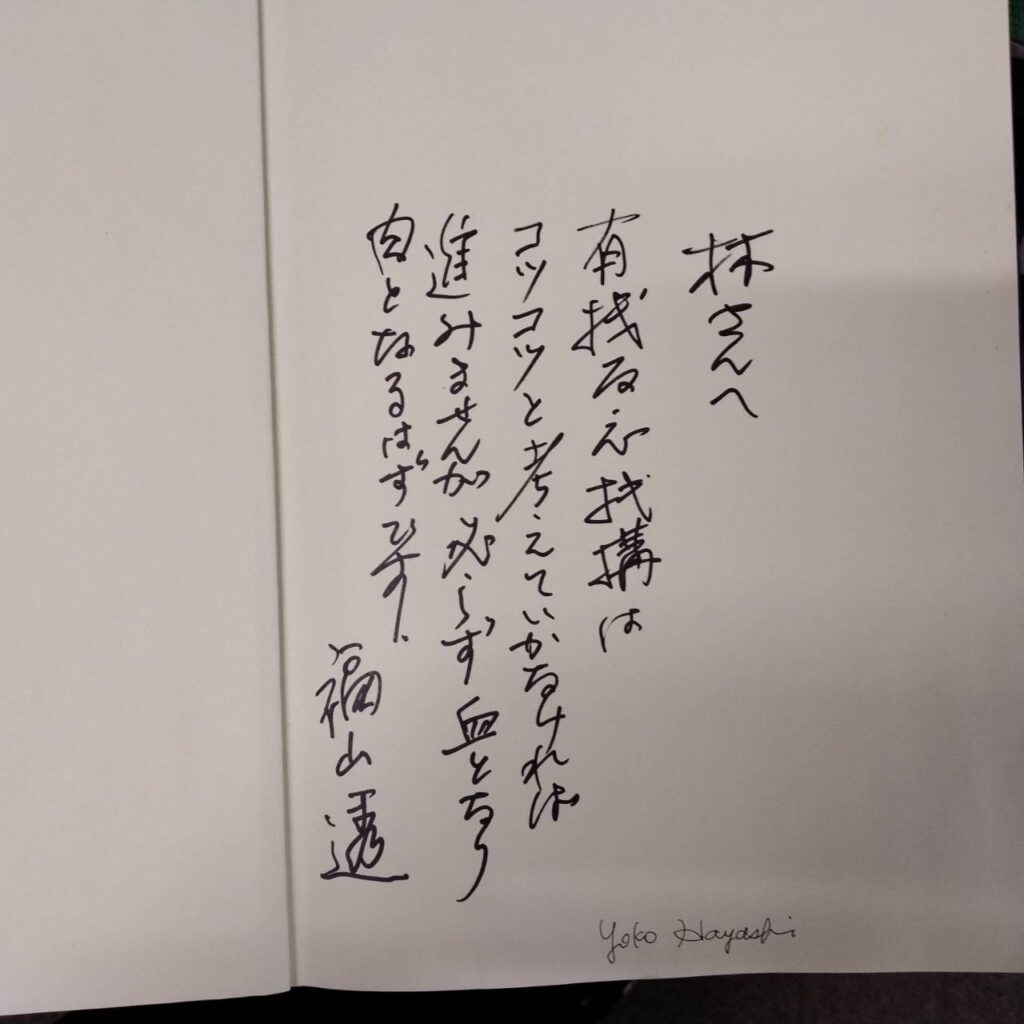 林さんへ
有机反応机構は
コツコツと考えていかなければ
進みませんが必らず血となり
肉となるはずです.
福山透
Yoko Hayashi